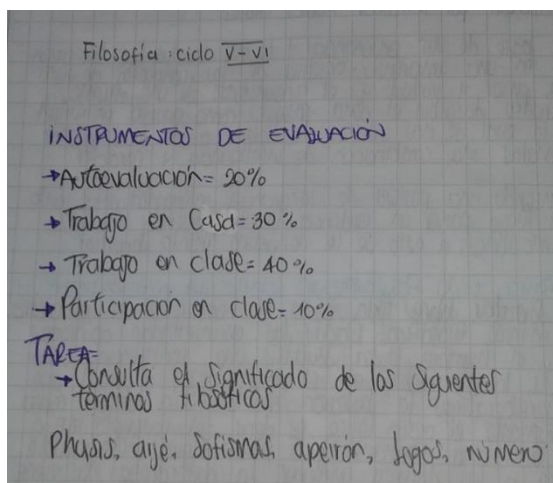 Filosofía: ciclo V-VI
INSTRUMENTOS DE EVALUACIÓN
→Autoevaluación= 20%
→Trabajo en Casa= 30%
→Trabajo en clase= 40%
→Participación en clase= 10%
TAREA=
→Consulta el significado de los siguentes
términos filosóficos
Physis, arjé, Sofismas, apeirón, logos, número